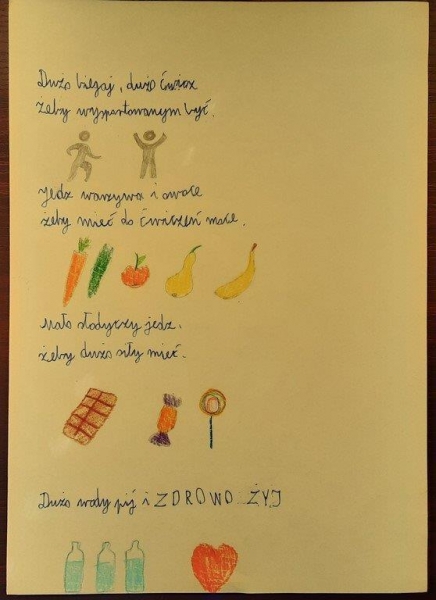 Dużo biegaj, dużo ćwicz
Żeby wysportowanym być.
Jedz warzywa i owoce
żeby mieć do ćwiczeń moce.
Mało słodyczy jedz.
żeby dużo siły mieć.
Dużo wody pij i ZDROWO ŻYJ